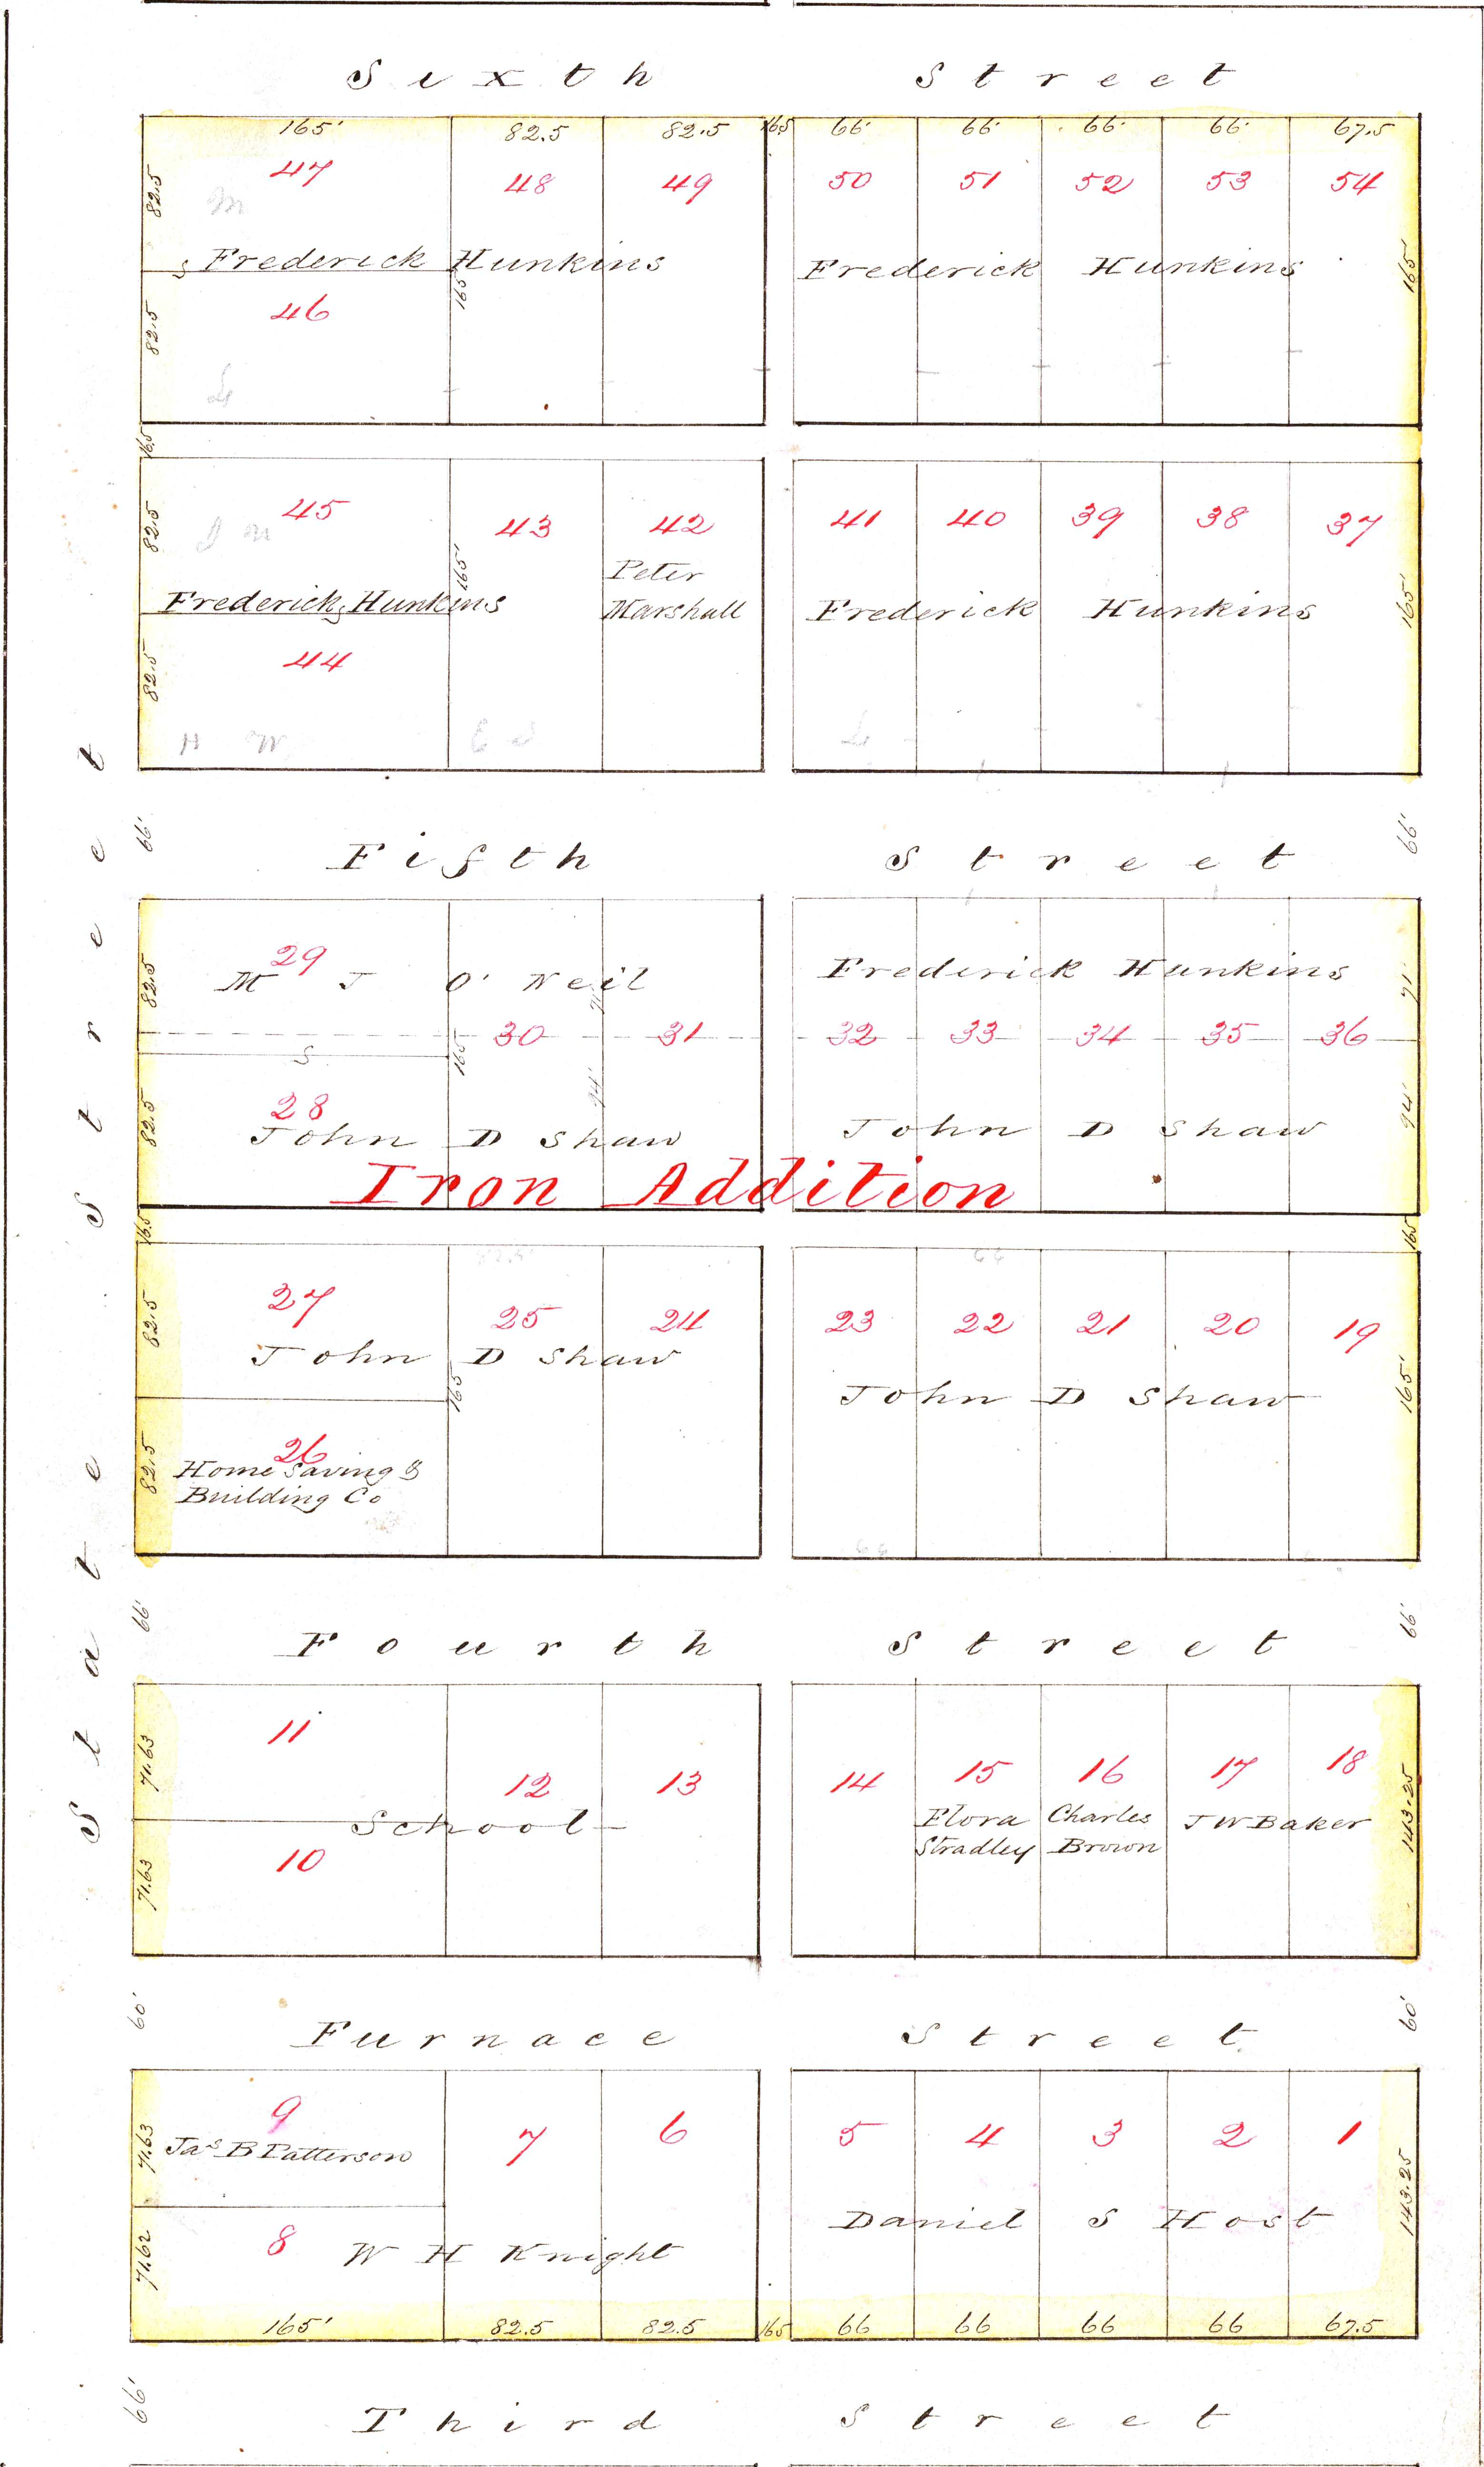 Sixth Street
165' 82.5 82.5 16.5 66' 66' 66' 66' 67.5
82.5 47 48 49 50 51 52 53 54
Frederick Hunkins Frederick Hunkins
165' 165'
82.5 46
16.5
82.5 45 43 42 41 40 39 38 37
Peter
Marshall
Frederick Hunkins Frederick Hunkins
165' 165'
82.5 44
66' Fifth Street 66'
82.5 29
M J O'Neil Frederick Hunkins
71' 71'
30 31 32 33 34 35 36
165 94' 94'
82.5 28
John D Shaw John D Shaw
Iron Addition
16.5 16.5
82.5 27 25 24 23 22 21 20 19
John D Shaw John D Shaw
165 165'
82.5 26
Home Saving &
Building Co
66' Fourth Street 66'
71.63 11 12 13 14 15 16 17 18
School
Flora
Stradley
Charles
Brown
J W Baker
143.25
71.63 10
60' Furnace Street 60'
71.63 9 7 6 5 4 3 2 1
Jas B Patterson
Daniel S Host
143.25
71.62 8 W H Knight
165' 82.5 82.5 16.5 66 66 66 66 67.5
66' Third Street
State Street